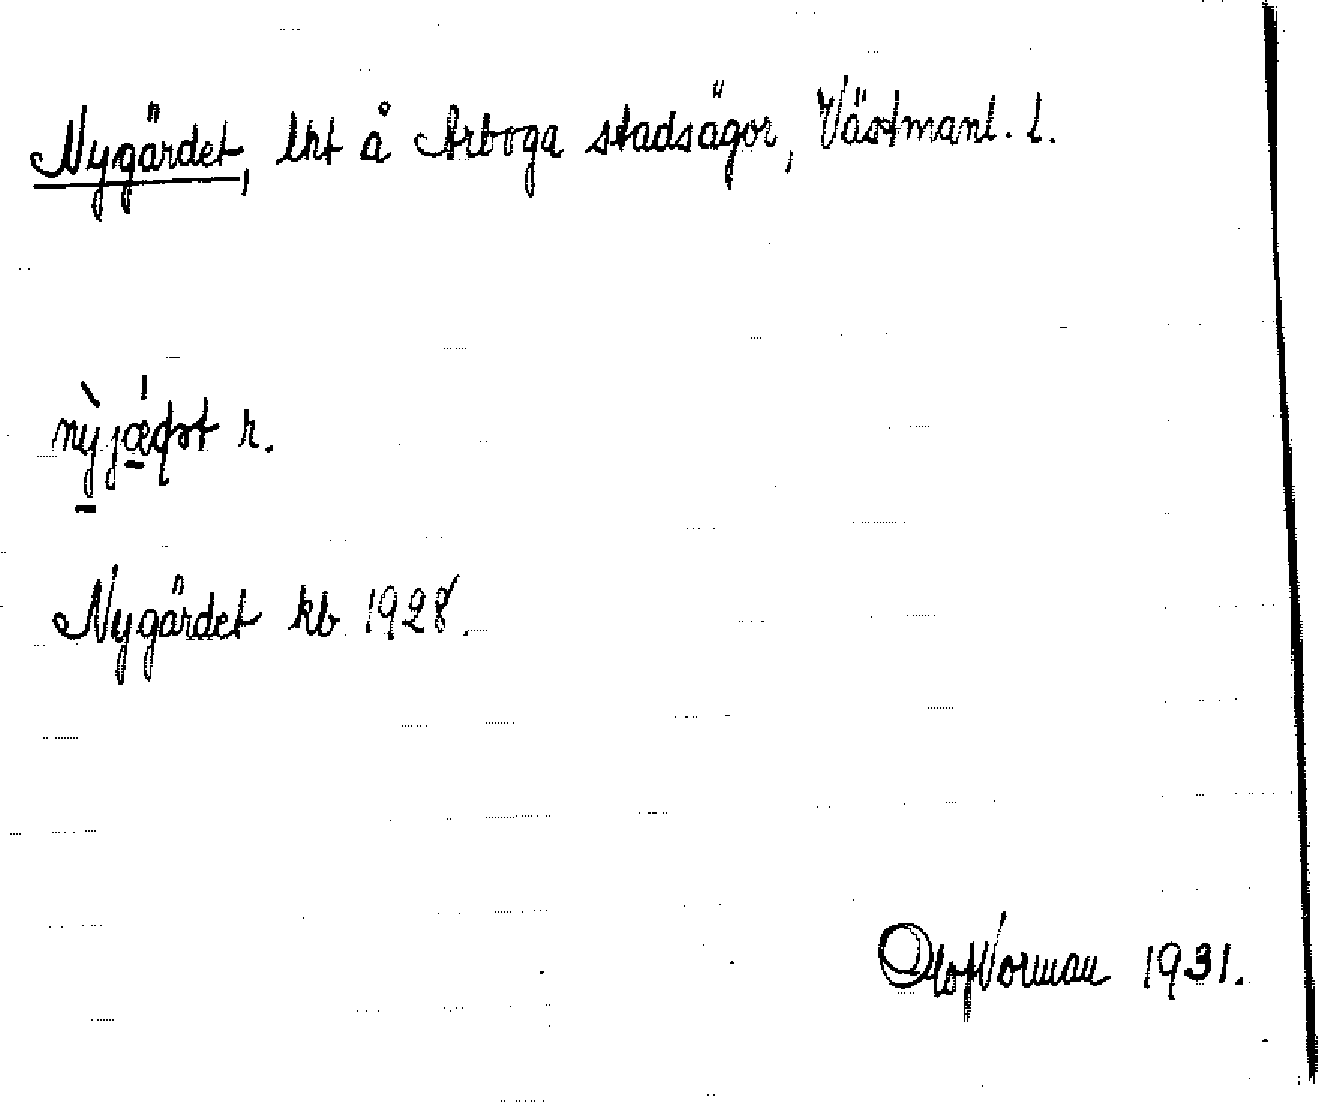 Nygärdet, lht å Arboga stadsägor, Västmanl. l.
r.
Nygärdet kb 1928.
Olof Norman 1931.